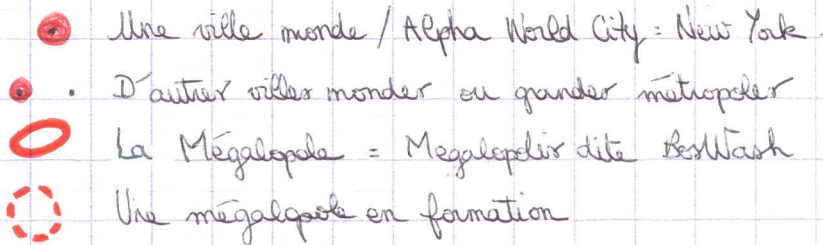 Une ville monde / Alpha World City = New York.
D'autres villes mondes ou grandes métropoles
La Mégalopole = Megalopolis dite BosWash
Une mégalopole en formation